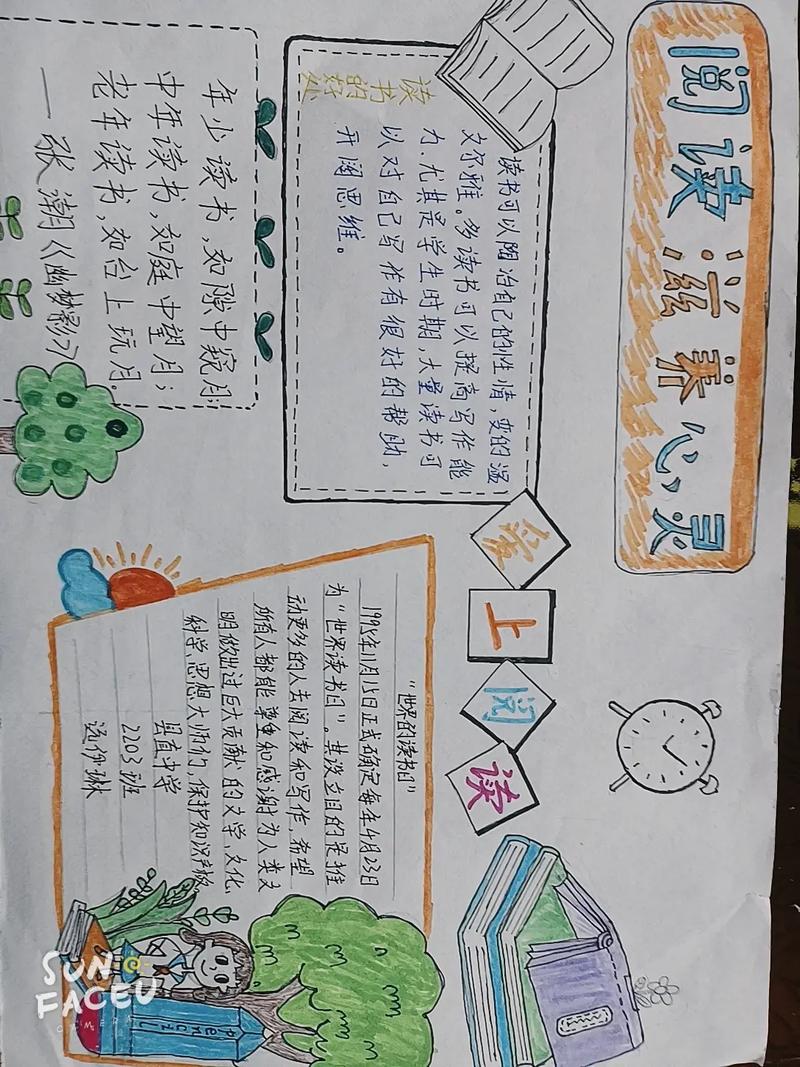 阅读滋养心灵
读书的好处
读书可以陶冶自己的性情,变的温
文尔雅。多读书可以提高写作能
力,尤其是学生时期,大量读书可
以对自己写作有很好的帮助,
开阔思维。
年少读书,如隙中窥月;
中年读书,如庭中望月;
老年读书,如台上玩月。
——张潮《幽梦影》
爱上阅读
“世界的读书日”
1995年11月15日正式确定每年4月23日
为“世界读书日”。其设立目的是推
动更多的人去阅读和写作,希望
所有人都能尊重和感谢为人类文
明做出过巨大贡献的文学、文化、
科学、思想大师们,保护知识产权
县直中学
2203班
伊琳
Pencil
SUN
FACEU